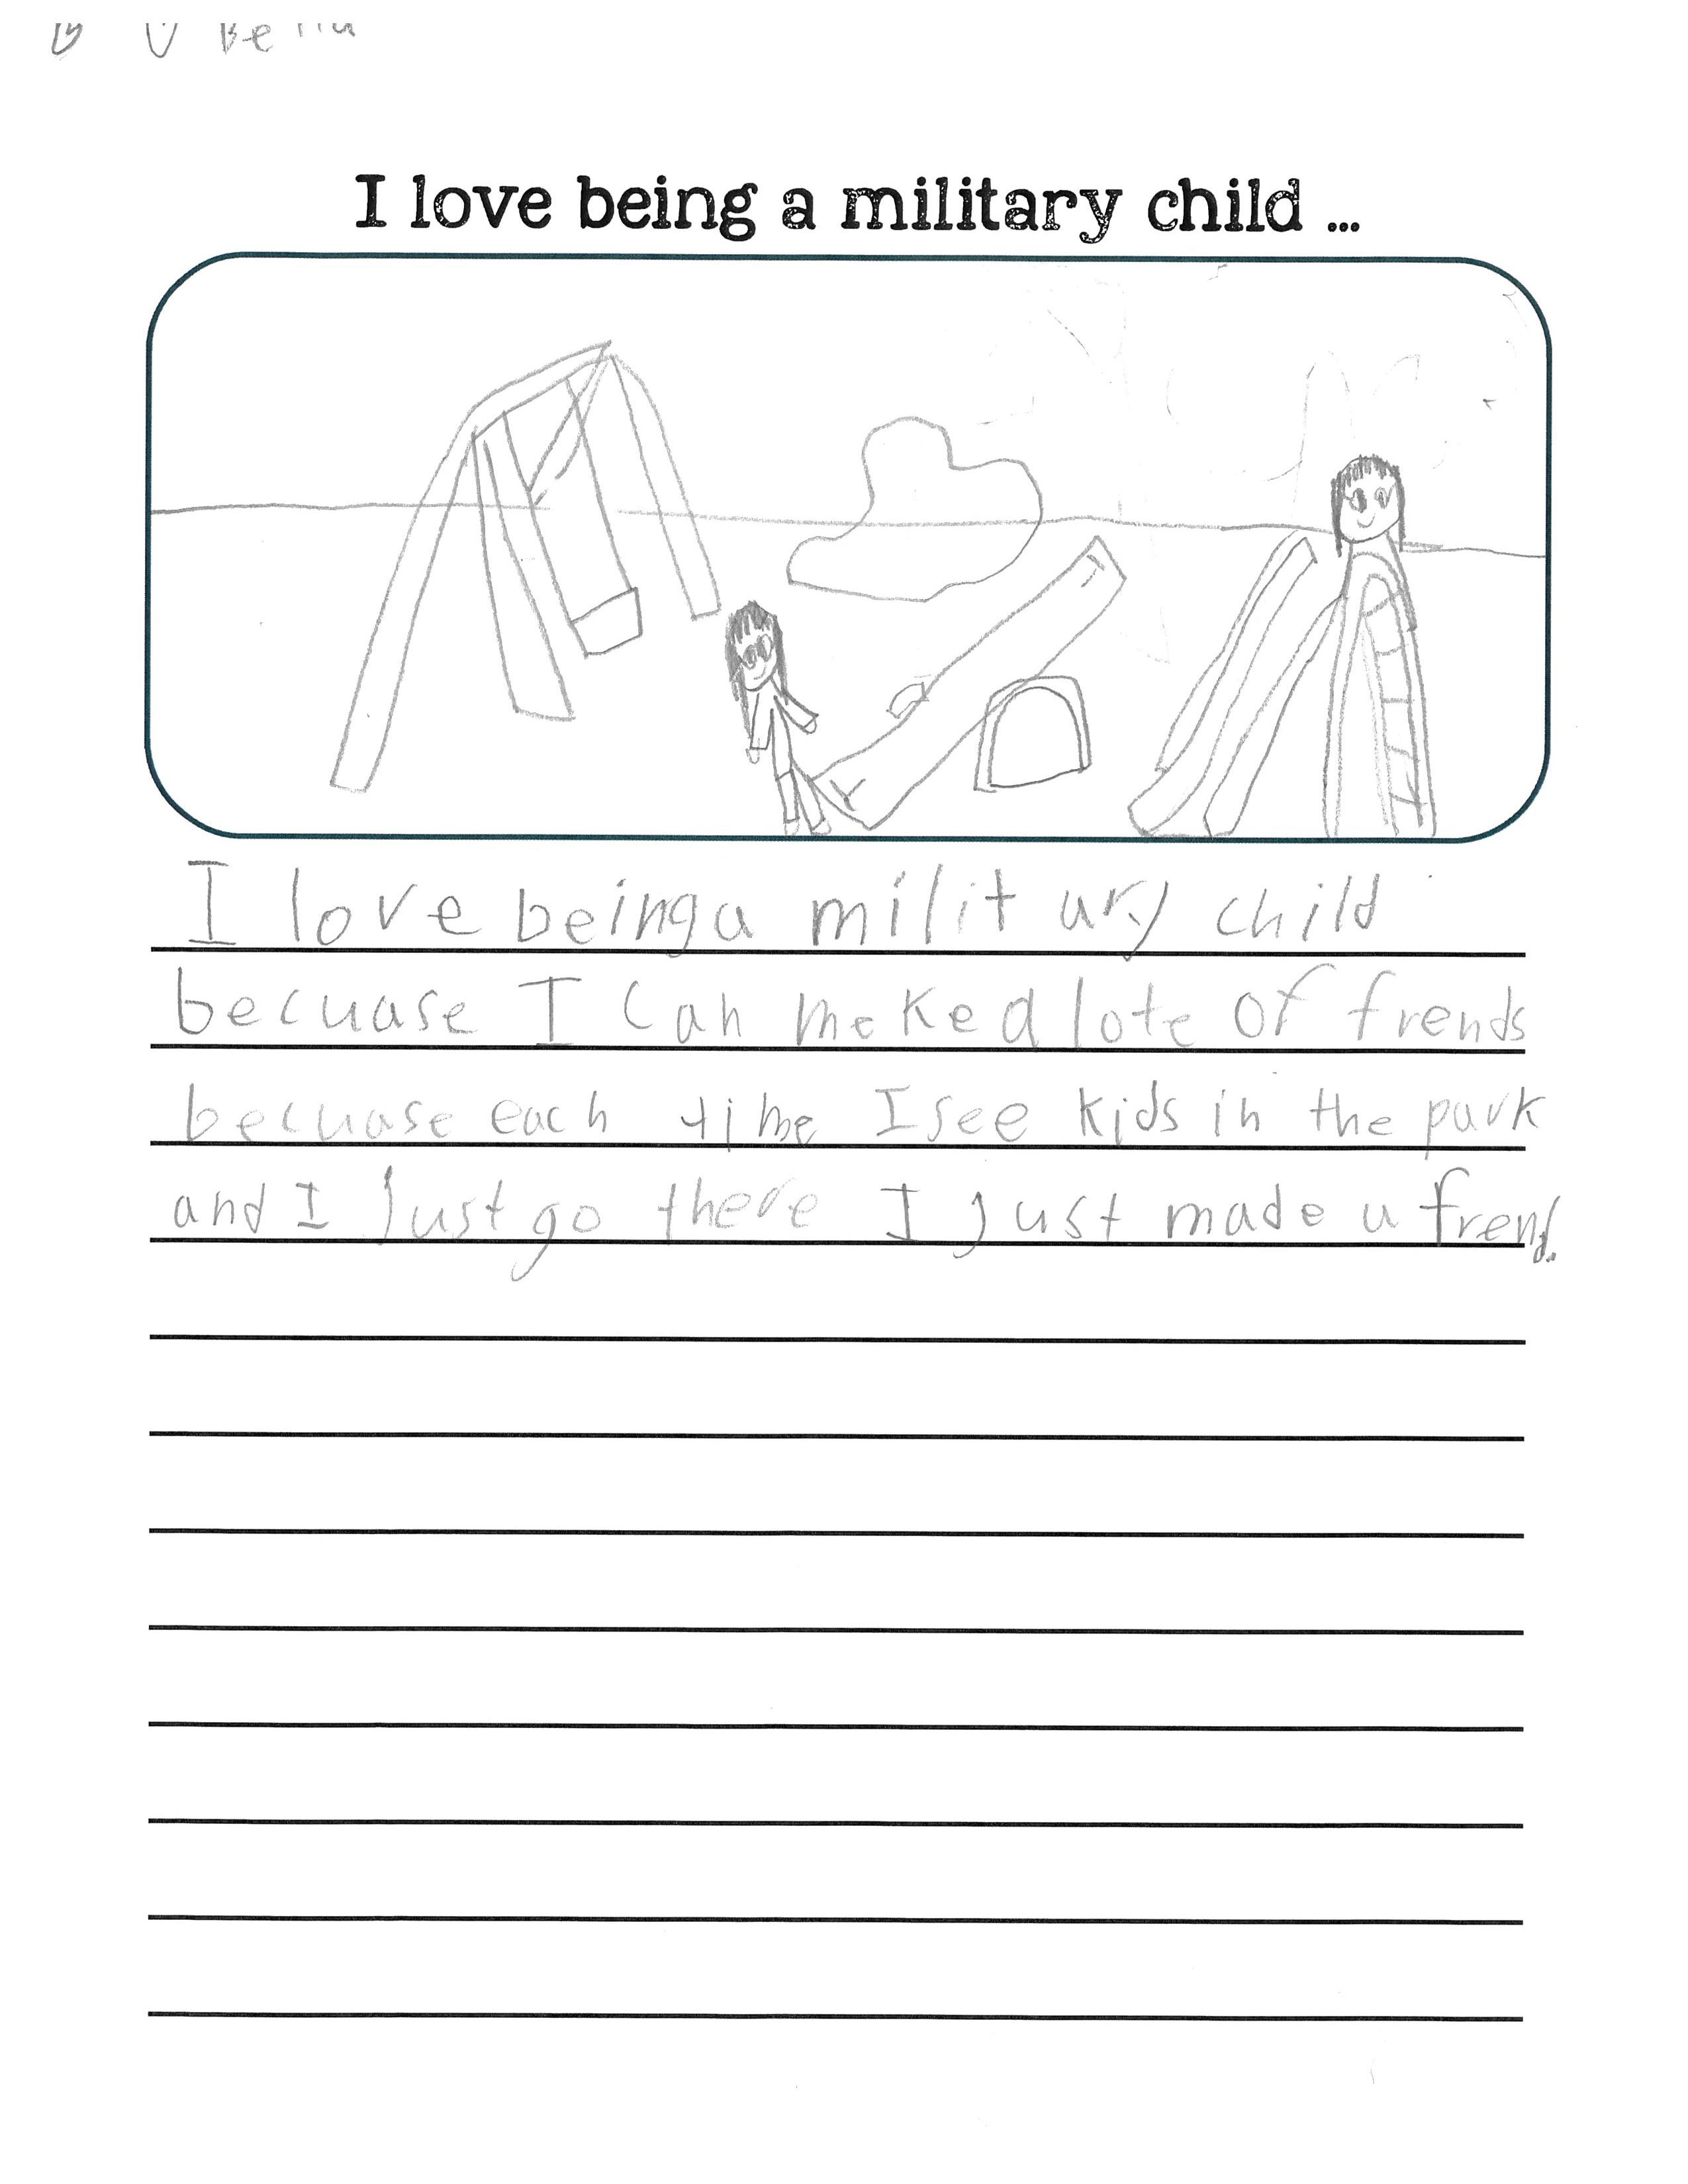 Bella
I love being a military child ...
I love being a military child
becuase I can meke a lote of frends
becuase each time I see kids in the park
and I just go there I just made a frend.